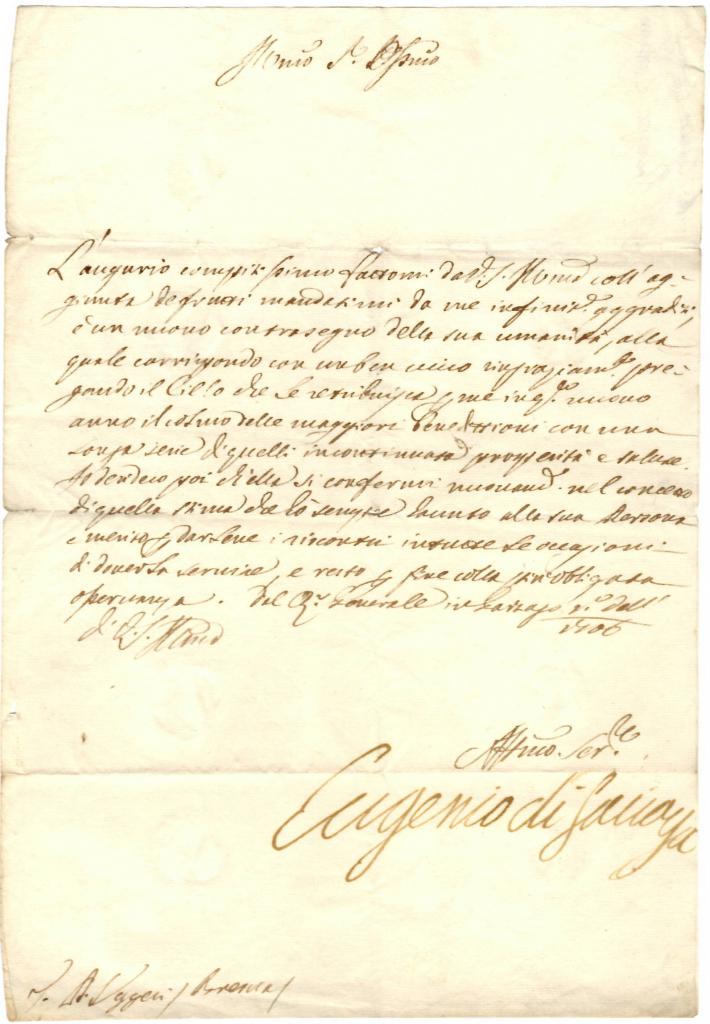 Illmo Sr. Ossmo
L'augurio compitissimo fattomi da V. S. Illma coll'ag-
giunta de frutti mandatimi da me infinite. aggraditi,
è un nuovo contrasegno della sua umanità, alla
quale corrispondo con un ben vivo ringraziam.to pre-
gando il Cielo che le retribuisca me in q.to nuovo
anno il colmo delle maggiori benedizioni con una
serie di quelli prosperità e salute.
poi ch'ella si confermi nel
di quella stima che hò sempre havuto alla sua Persona
e merito darlene i riscontri in tutte le occasioni
di doverla servire, e resto colla più obligata
osservanza. Del Q.r Generale in p.o dell'
1706
di V. S. Illma
Affmo. Ser.re
Eugenio di Savoya